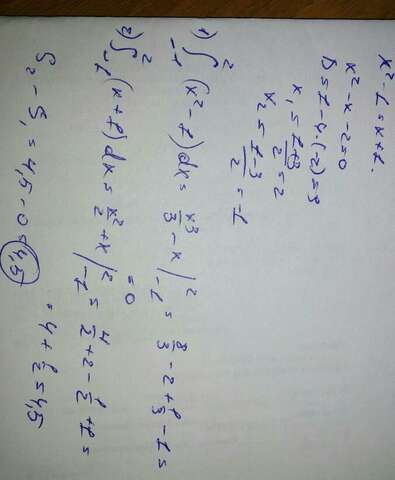 x² - 1 = x + 1.
x² - x - 2 = 0
D = 1 - 4·(-2) = 9
x₁ = (1+3)/2 = 2
x₂ = (1-3)/2 = -1
1) ∫₋₁² (x² - 1) dx = x³/3 - x |₋₁² = 8/3 - 2 + 1/3 - 1 =
= 0
2) ∫₋₁² (x + 1) dx = x²/2 + x |₋₁² = 4/2 + 2 - 1/2 + 1 =
= 4 + 1/2 = 4,5
S₂ - S₁ = 4,5 - 0 = 4,5